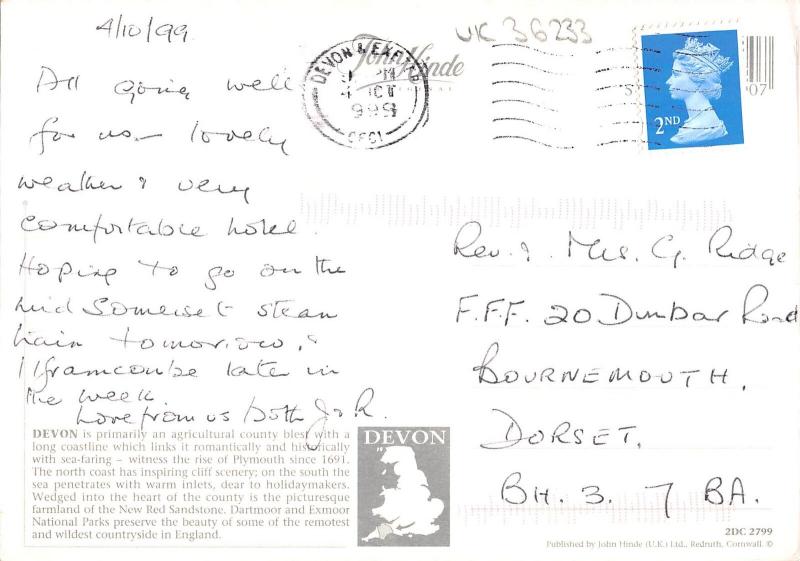 4/10/99
All going well
for us - lovely
weather & very
comfortable hotel.
Hoping to go on the
mid Somerset steam
train tomorrow, &
Ilframcombe later in
the week.
Love from us both J & R.
UK 36233
DEVON & EXETER
PM
4 OCT
1999
John Hinde
2ND
07
Rev. & Mrs. G. Ridge
F.F.F. 20 Dunbar Road
BOURNEMOUTH.
DORSET.
BH. 3. 7 BA.
DEVON is primarily an agricultural county blest with a
long coastline which links it romantically and historically
with sea-faring – witness the rise of Plymouth since 1691.
The north coast has inspiring cliff scenery; on the south the
sea penetrates with warm inlets, dear to holidaymakers.
Wedged into the heart of the county is the picturesque
farmland of the New Red Sandstone. Dartmoor and Exmoor
National Parks preserve the beauty of some of the remotest
and wildest countryside in England.
DEVON
2DC 2799
Published by John Hinde (U.K.) Ltd., Redruth, Cornwall. ©